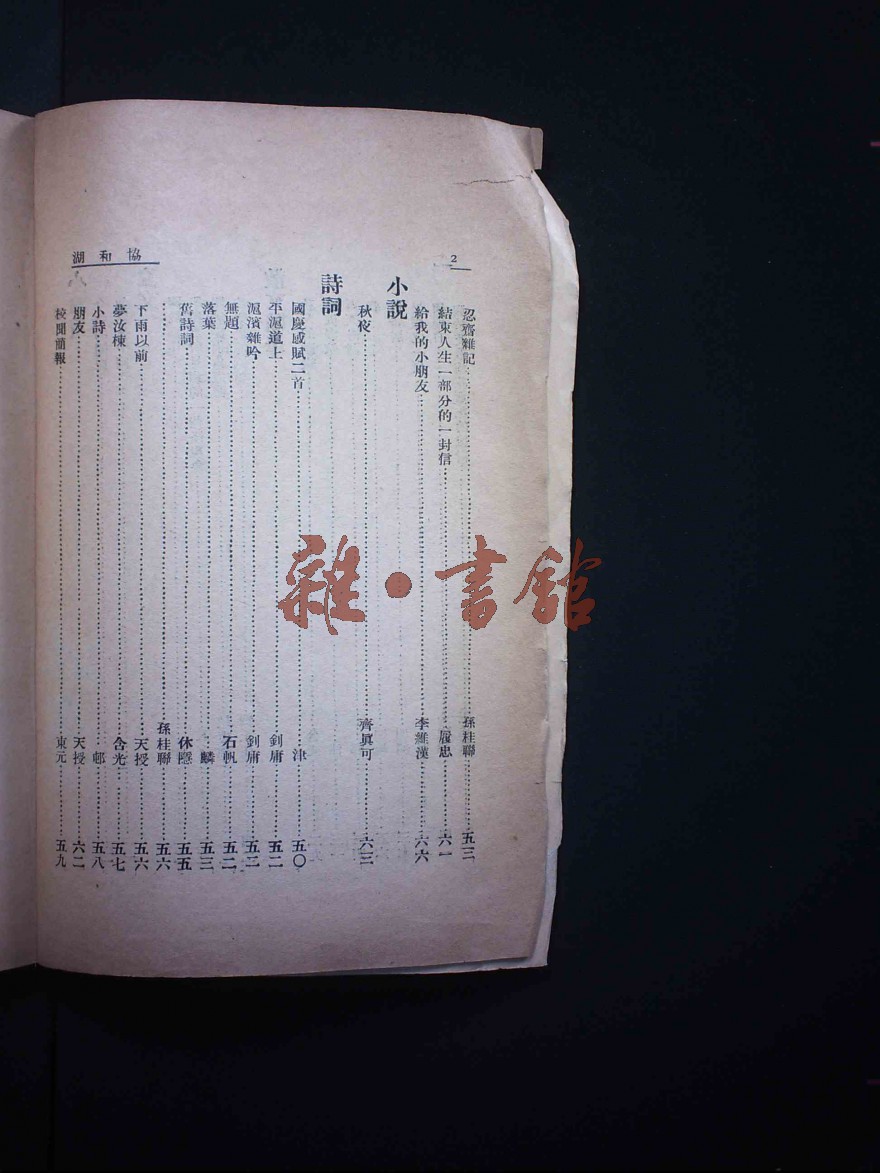 2
湖和協
忍齋雜記 孫桂聯 五三
結束人生一部分的一封信 履忠 六一
給我的小朋友 李維漢 六六
小說
秋夜 齊眞可 六三
詩詞
國慶感賦二首 津 五〇
平滬道上 釗庸 五二
滬濱雜吟 釗庸 五二
無題 石帆 五二
落葉 麟 五三
舊詩詞 休隱 五五
孫桂聯 五六
下雨以前 天授 五六
夢汝棟 含光 五七
小詩 邨 五八
朋友 天授 六二
校聞簡報 東元 五九
雜·書館